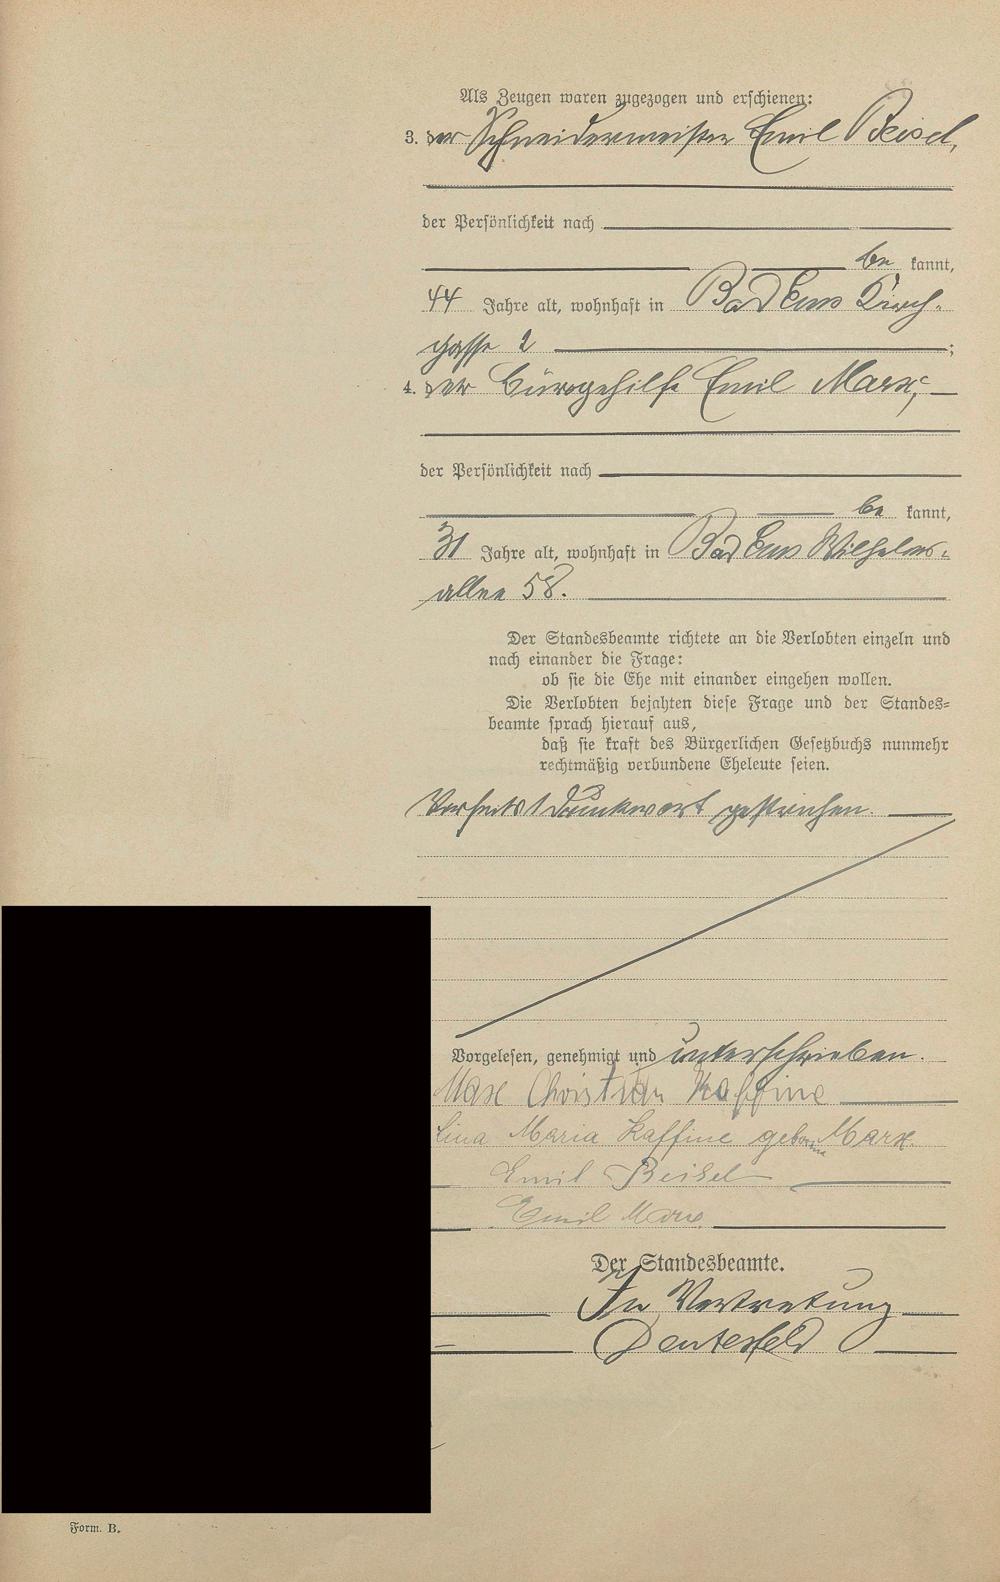 Als Zeugen waren zugezogen und erschienen:
3. der Schneidermeister Emil Beisel,
der Persönlichkeit nach
be kannt,
44 Jahre alt, wohnhaft in Bad Ems Kirch-
gasse 2 ;
4. der Bürogehilfe Emil Marx,
der Persönlichkeit nach
be kannt,
31 Jahre alt, wohnhaft in Bad Ems Wilhelms-
allee 58.
Der Standesbeamte richtete an die Verlobten einzeln und
nach einander die Frage:
ob sie die Ehe mit einander eingehen wollen.
Die Verlobten bejahten diese Frage und der Standes-
beamte sprach hierauf aus,
daß sie kraft des Bürgerlichen Gesetzbuchs nunmehr
rechtmäßig verbundene Eheleute seien.
Vorseits 1 Druckwort gestrichen.
Vorgelesen, genehmigt und unterschrieben.
Max Christian Kaffine
Lina Maria Kaffine geborene Marx.
Emil Beisel
Emil Marx
Der Standesbeamte.
In Vertretung
Form. B.